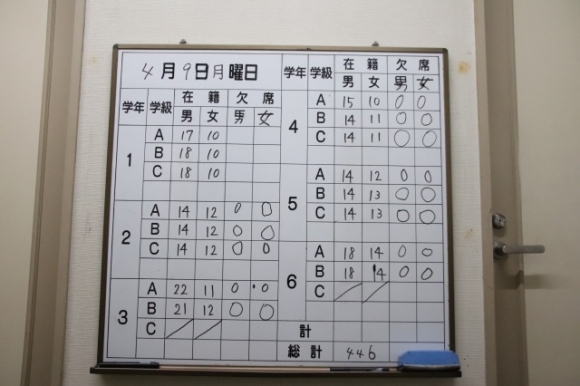 4月9日月曜日
学年 学級 在籍 欠席
男 女 男 女
1 A 17 10
B 18 10
C 18 10
2 A 14 12 0 0
B 14 12 0 0
C 14 12 0 0
3 A 22 11 0 0
B 21 12 0 0
C / /
学年 学級 在籍 欠席
男 女 男 女
4 A 15 10 0 0
B 14 11 0 0
C 14 11 0 0
5 A 14 12 0 0
B 14 13 0 0
C 14 13 0 0
6 A 18 14 0 0
B 18 14 0 0
C / /
計
総計 446